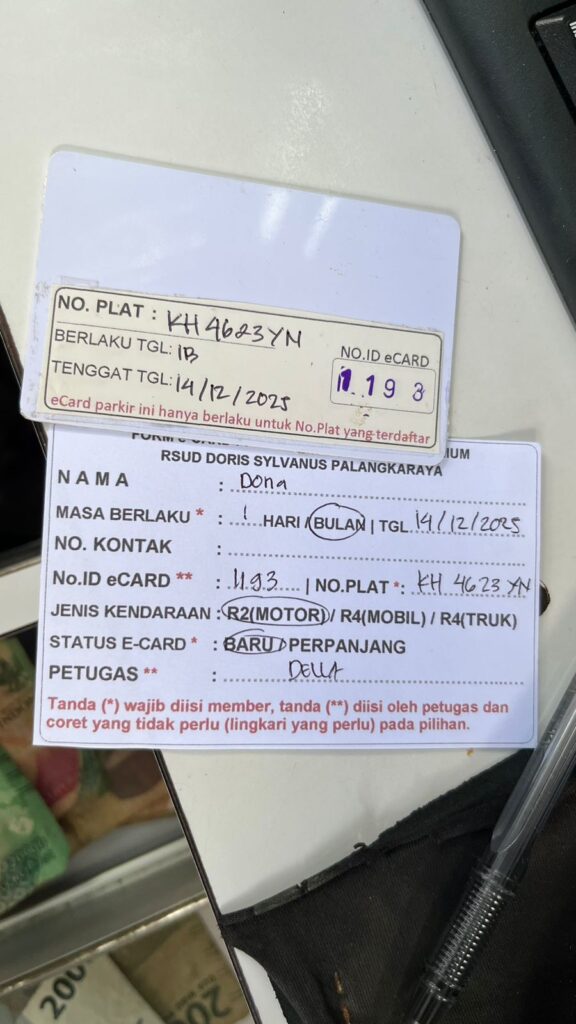 NO. PLAT : KH 4623 YN
BERLAKU TGL: 1B
NO.ID eCARD
TENGGAT TGL: 14/12/2025
1193
eCard parkir ini hanya berlaku untuk No.Plat yang terdaftar
RSUD DORIS SYLVANUS PALANGKARAYA
NAMA : Dona
MASA BERLAKU * : 1 HARI / BULAN | TGL 14/12/2025
NO. KONTAK :
No.ID eCARD ** : 1193 | NO.PLAT *: KH 4623 YN
JENIS KENDARAAN : R2(MOTOR) / R4(MOBIL) / R4(TRUK)
STATUS E-CARD * : BARU / PERPANJANG
PETUGAS ** : DELLA
Tanda (*) wajib diisi member, tanda (**) diisi oleh petugas dan
coret yang tidak perlu (lingkari yang perlu) pada pilihan.
200